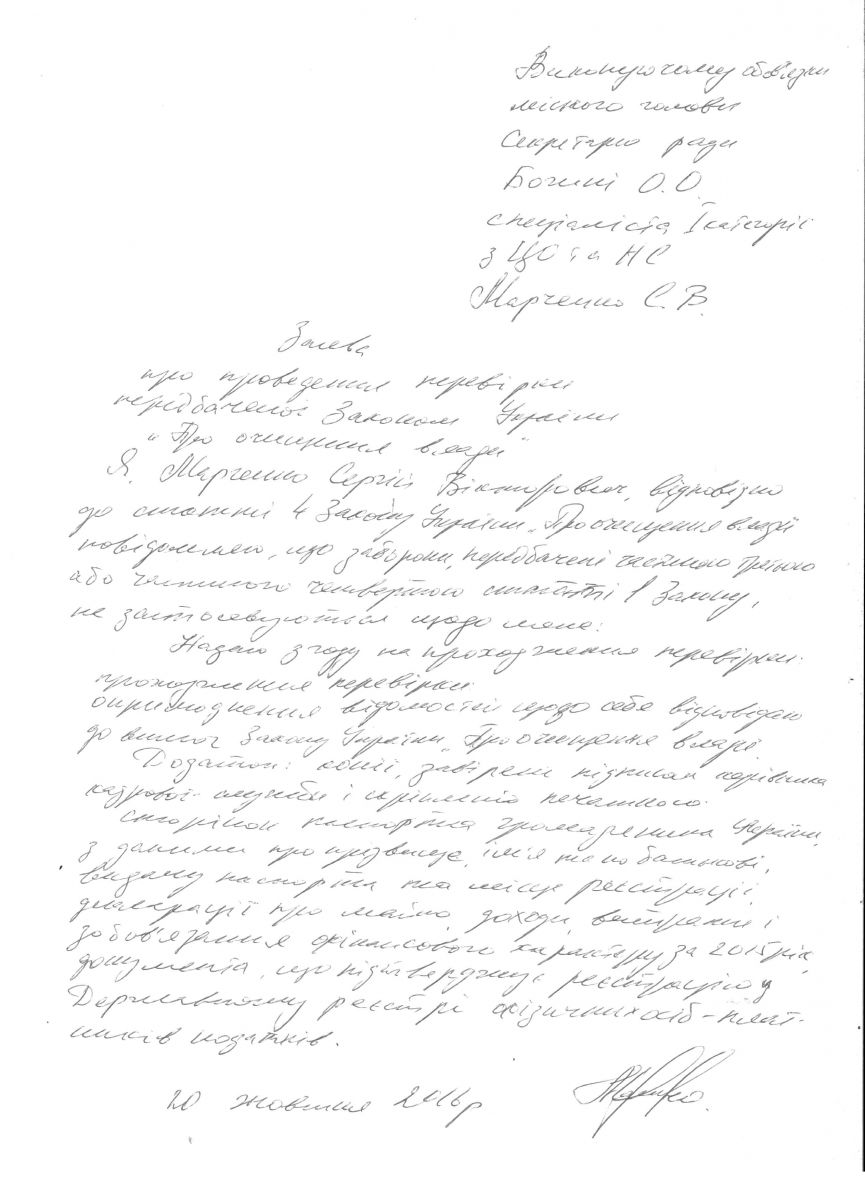 Виконуючому обов'язки
міського голови
Секретарю ради
Божині О.О.
спеціаліста І категорії
з ЦО та НС
Марченко С.В.
Заява
про проведення перевірки
передбаченої Законом України
"Про очищення влади"
Я, Марченко Сергій Вікторович, відповідно
до статті 4 Закону України "Про очищення влади
повідомляю, що заборони, передбачені частиною третьою
або частиною четвертою статті 1 Закону,
не застосовуються щодо мене.
Надаю згоду на проходження перевірки:
проходження перевірки
оприлюднення відомостей щодо себе відповідно
до вимог Закону України "Про очищення владі
Додаток: копії, завірені підписом керівника
кадрової служби і скріплені печаткою.
сторінок паспорта громадянина України
з даними про прізвище, ім'я та по батькові,
видачу паспорта та місце реєстрації,
декларації про майно, доходи, витрати і
зобов'язання фінансового характеру за 2015 рік,
документа, що підтверджує реєстрацію у
Державному реєстрі фізичних осіб - плат-
ників податків.
20 жовтня 2016 р